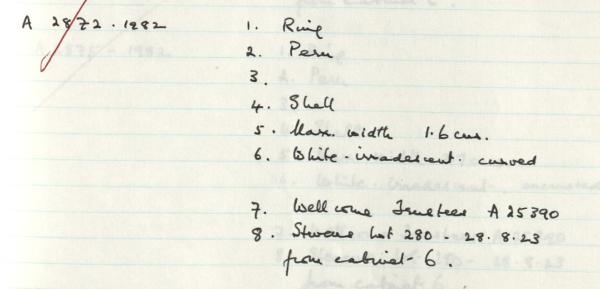 A 2872.1982
1. Ring
2. Peru
3.
4. Shell
5. Max. width 1.6 cms.
6. White. irradescent. curved
7. Wellcome Trustees A 25390
8. Stevens Lot 280 - 28.8.23
from cabinet 6.